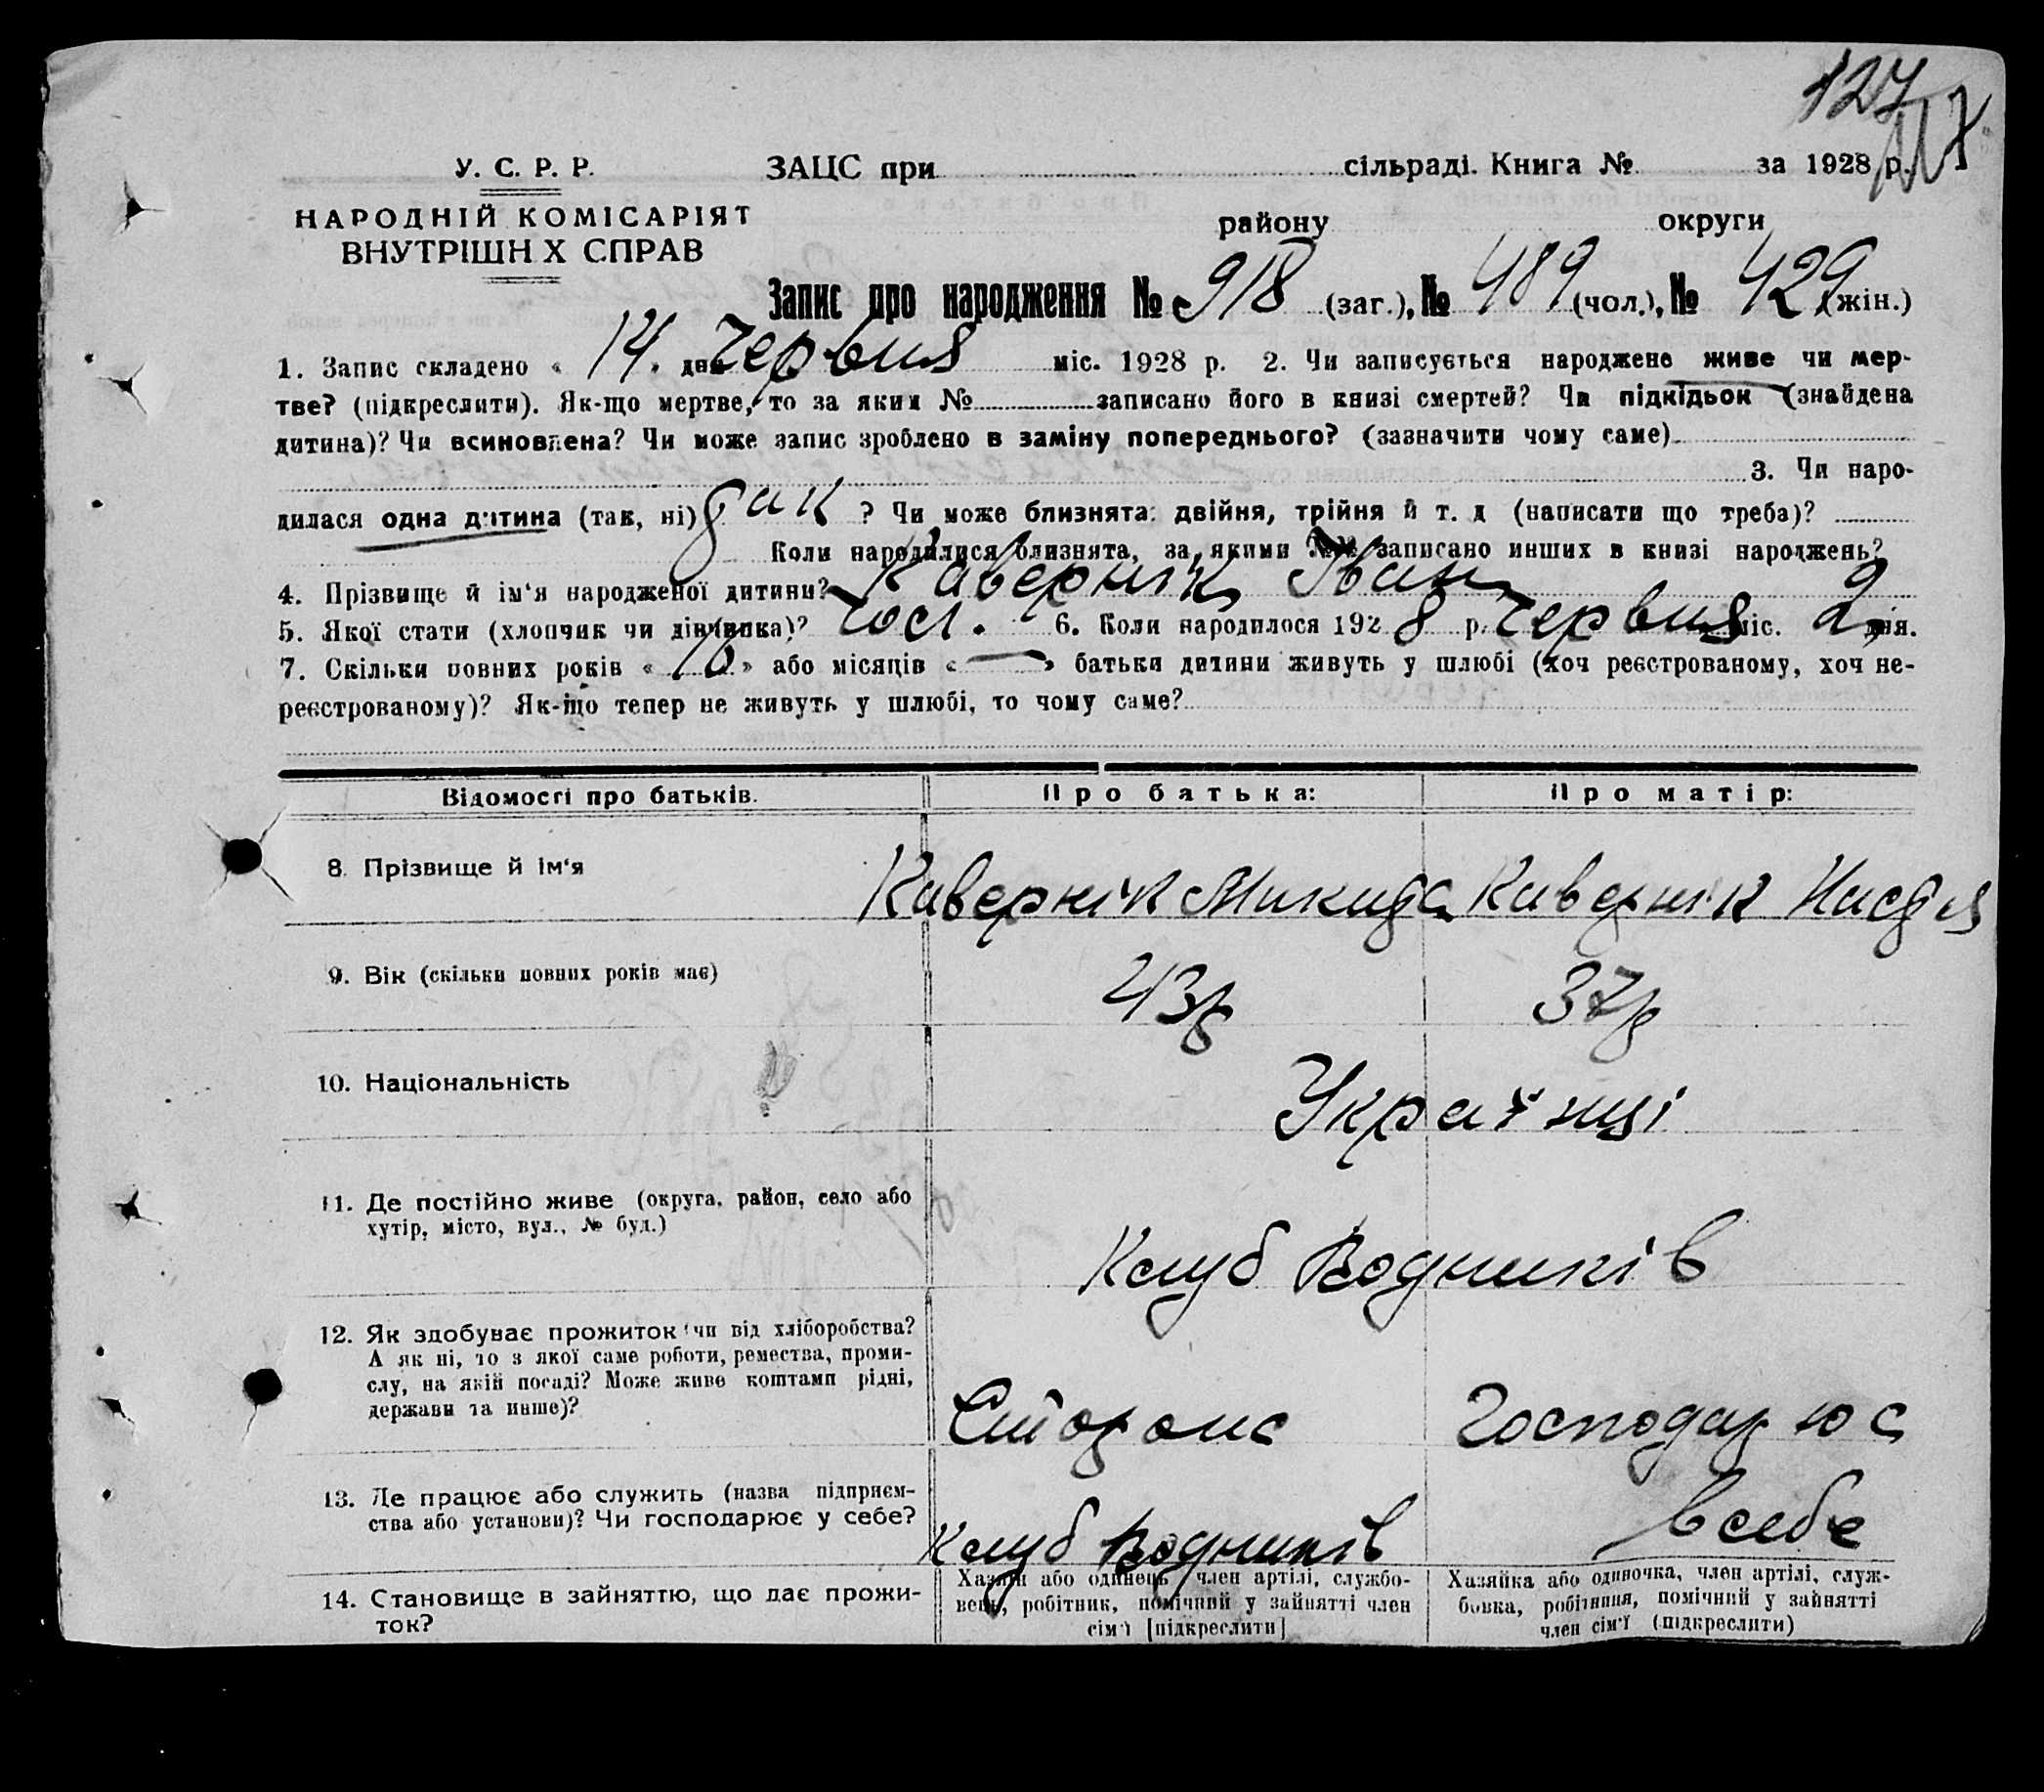 127
У. С. Р. Р. ЗАЦС при сільраді. Книга № за 1928 р.
НАРОДНІЙ КОМІСАРІЯТ району округи
ВНУТРІШН Х СПРАВ
Запис про народження № 918 (заг.), № 489 (чол.), № 429 (жін.)
1. Запис складено « 14 » дня Червня міс. 1928 р. 2. Чи записується народжене живе чи мер-
тве? (підкреслити). Як-що мертве, то за яким № записано його в книзі смертей? Чи підкідьок (знайдена
дитина)? Чи всиновлена? Чи може запис зроблено в заміну попереднього? (зазначити чому саме)
3. Чи наро-
дилася одна дитина (так, ні) так ? Чи може близнята: двійня, трійня й т. д (написати що треба)?
Коли народилися близнята, за якими №№ записано инших в книзі народжень?
4. Прізвище й ім'я народженої дитини? Кавернік Іван
5. Якої стати (хлопчик чи дівчинка)? чол. 6. Коли народилося 1928 р. Червня міс. 2 дня.
7. Скільки повних років « » або місяців « — » батьки дитини живуть у шлюбі (хоч реєстрованому, хоч не-
реєстрованому)? Як-що тепер не живуть у шлюбі, то чому саме?
Відомості про батьків. Про батька: Про матір:
8. Прізвище й ім'я Кавернік Микита Кавернік Настя
9. Вік (скільки повних років має) 43р 37р
10. Національність Українці
11. Де постійно живе (округа, район, село або
хутір, місто, вул., № буд.)
Клуб Водників
12. Як здобуває прожиток чи від хліборобства?
А як ні, то з якої саме роботи, ремества, проми-
слу, на якій посаді? Може живе коштами рідні,
держави та инше)?
Господарює
13. Де працює або служить (назва підприєм-
ства або установи)? Чи господарює у себе?
Клуб Водників в себе
14. Становище в зайняттю, що дає прожи-
ток?
Хазяїн або одинець, член артілі, службо-
вець, робітник, помічний у зайнятті член
сім'ї [підкреслити]
Хазяйка або одиночка, член артілі, служ-
бовка, робітниця, помічний у зайнятті
член сім'ї (підкреслити)